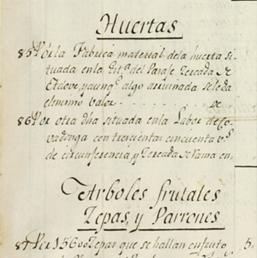 Huertas
85 Por la Fabrica material dela huerta si
tuada enla del Paraje Zercada
algo arruinada seleda
elmismo valor
86 Por otra dha situada enla Labor de Co
vadonga con trescientas cincuenta v.s
de circunferencia y Zercada de rama en
Arboles frutales
Zepas, y Parrones
87 Por 1560 Zepas que se hallan enfruto
5